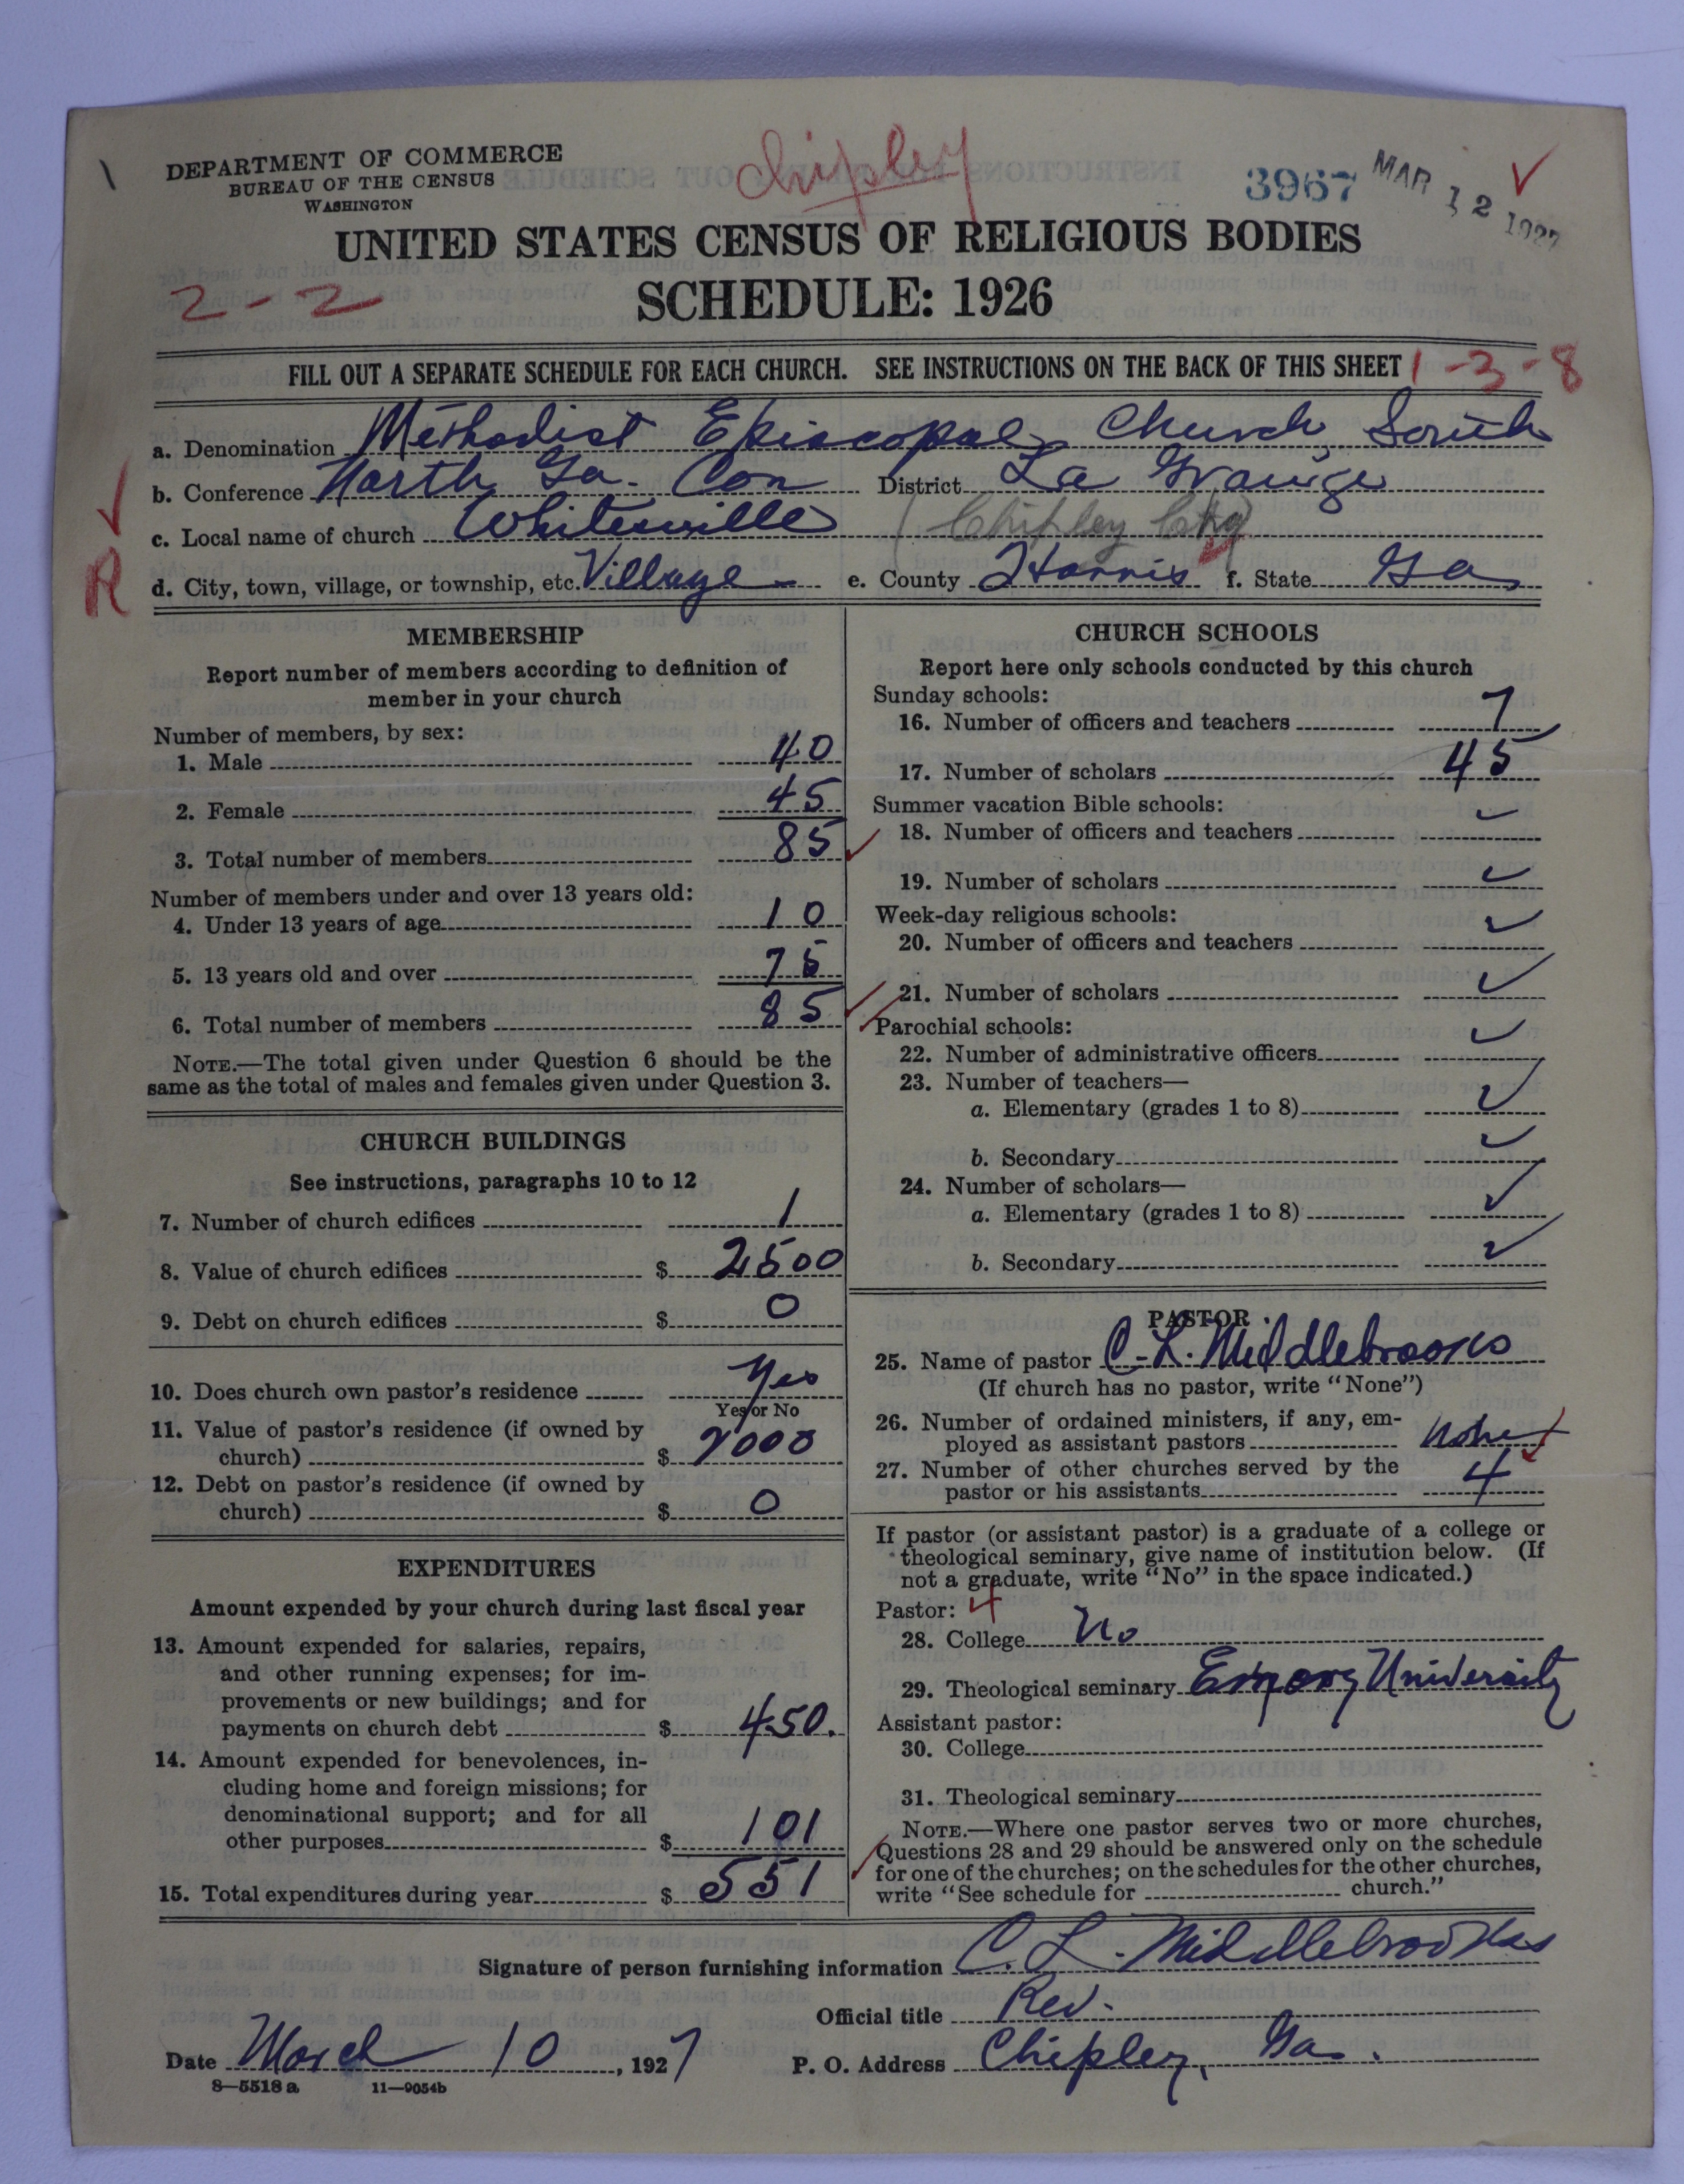 DEPARTMENT OF COMMERCE
BUREAU OF THE CENSUS
WASHINGTON
Chipley
3967
MAR 12 1927
UNITED STATES CENSUS OF RELIGIOUS BODIES
2-2
SCHEDULE: 1926
FILL OUT A SEPARATE SCHEDULE FOR EACH CHURCH. SEE INSTRUCTIONS ON THE BACK OF THIS SHEET
1-3-8
a. Denomination Methodist Episcopal Church, South
b. Conference North Ga. Con District La Grange
c. Local name of church Whitesville (Chipley
R
d. City, town, village, or township, etc. Village e. County Harris f. State Ga
MEMBERSHIP
Report number of members according to definition of
member in your church
Number of members, by sex:
1. Male 40
2. Female 45
3. Total number of members 85
Number of members under and over 13 years old:
4. Under 13 years of age 10
5. 13 years old and over 75
6. Total number of members 85
NOTE.—The total given under Question 6 should be the
same as the total of males and females given under Question 3.
CHURCH BUILDINGS
See instructions, paragraphs 10 to 12
7. Number of church edifices 1
8. Value of church edifices $ 2500
9. Debt on church edifices $ 0
10. Does church own pastor's residence Yes
Yes or No
11. Value of pastor's residence (if owned by
church) $ 2000
12. Debt on pastor's residence (if owned by
church) $ 0
EXPENDITURES
Amount expended by your church during last fiscal year
13. Amount expended for salaries, repairs,
and other running expenses; for im-
provements or new buildings; and for
payments on church debt $ 450.
14. Amount expended for benevolences, in-
cluding home and foreign missions; for
denominational support; and for all
other purposes $ 101
15. Total expenditures during year $ 551
CHURCH SCHOOLS
Report here only schools conducted by this church
Sunday schools:
16. Number of officers and teachers 7
17. Number of scholars 45
Summer vacation Bible schools:
18. Number of officers and teachers
19. Number of scholars
Week-day religious schools:
20. Number of officers and teachers
21. Number of scholars
Parochial schools:
22. Number of administrative officers
23. Number of teachers—
a. Elementary (grades 1 to 8)
b. Secondary
24. Number of scholars—
a. Elementary (grades 1 to 8)
b. Secondary
PASTOR
25. Name of pastor C. L. Middlebrooks
(If church has no pastor, write "None")
26. Number of ordained ministers, if any, em-
ployed as assistant pastors None
27. Number of other churches served by the
pastor or his assistants 4
If pastor (or assistant pastor) is a graduate of a college or
theological seminary, give name of institution below. (If
not a graduate, write "No" in the space indicated.)
Pastor: 4
28. College No
29. Theological seminary Emory University
Assistant pastor:
30. College
31. Theological seminary
NOTE.—Where one pastor serves two or more churches,
Questions 28 and 29 should be answered only on the schedule
for one of the churches; on the schedules for the other churches,
write "See schedule for church."
Signature of person furnishing information C. L. Middlebrooks
Official title Rev.
Date March 10, 1927 P. O. Address Chipley, Ga.
8—5518 a 11—9054b